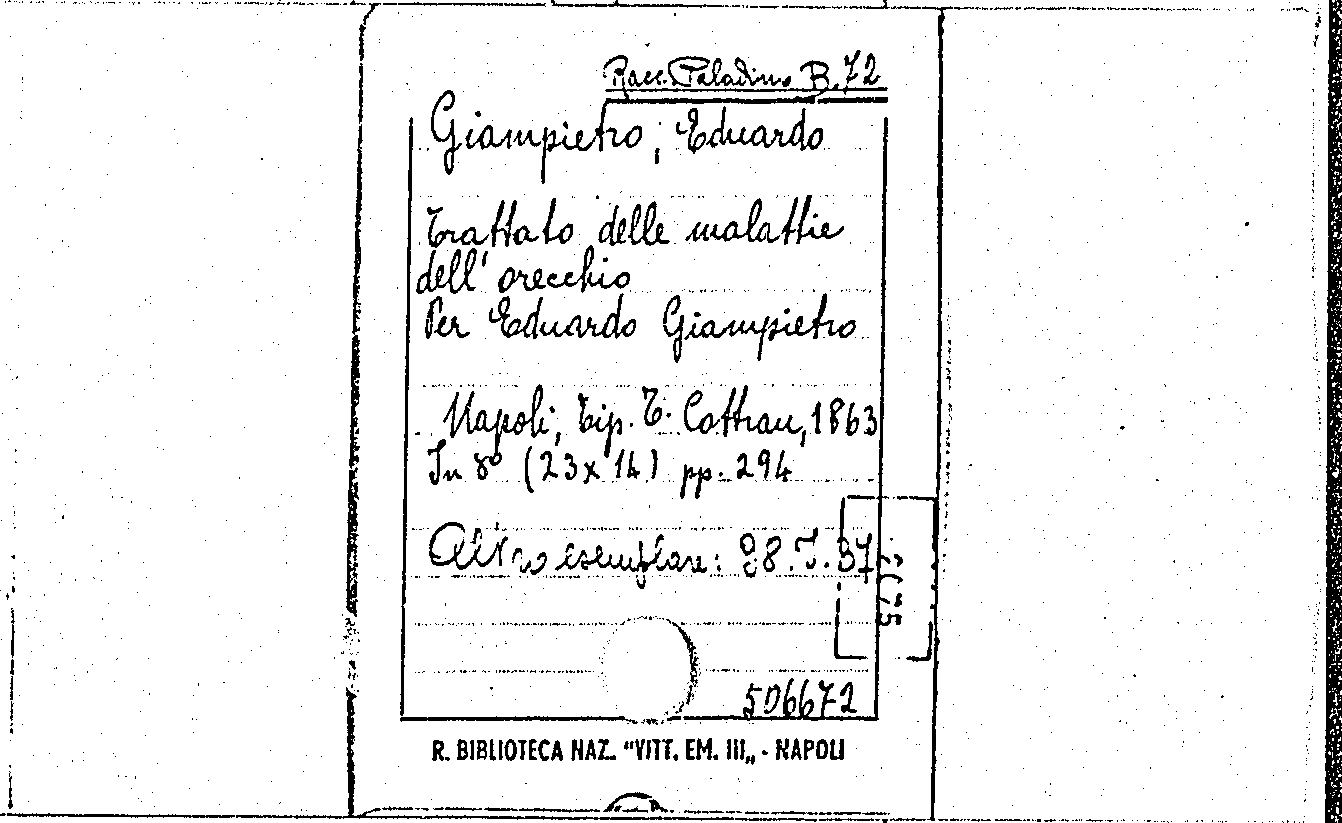 Racc. Paladino B.72
Giampietro, Eduardo
Trattato delle malattie
dell' orecchio
Per Eduardo Giampietro
Napoli, Tip. T. Cottrau, 1863
In 8° (23x14) pp. 294
Altro esemplare: 98.J.37
506672
R. BIBLIOTECA NAZ. "VITT. EM. III„ - NAPOLI